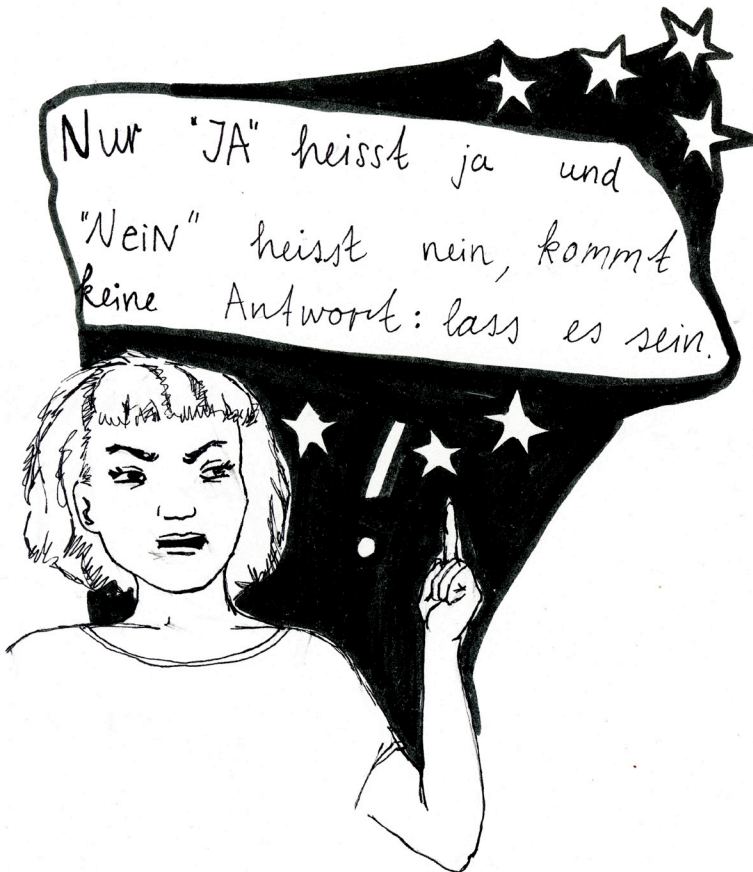 Nur "JA" heisst ja und
"NeiN" heisst nein, kommt
keine Antwort: lass es sein.
!